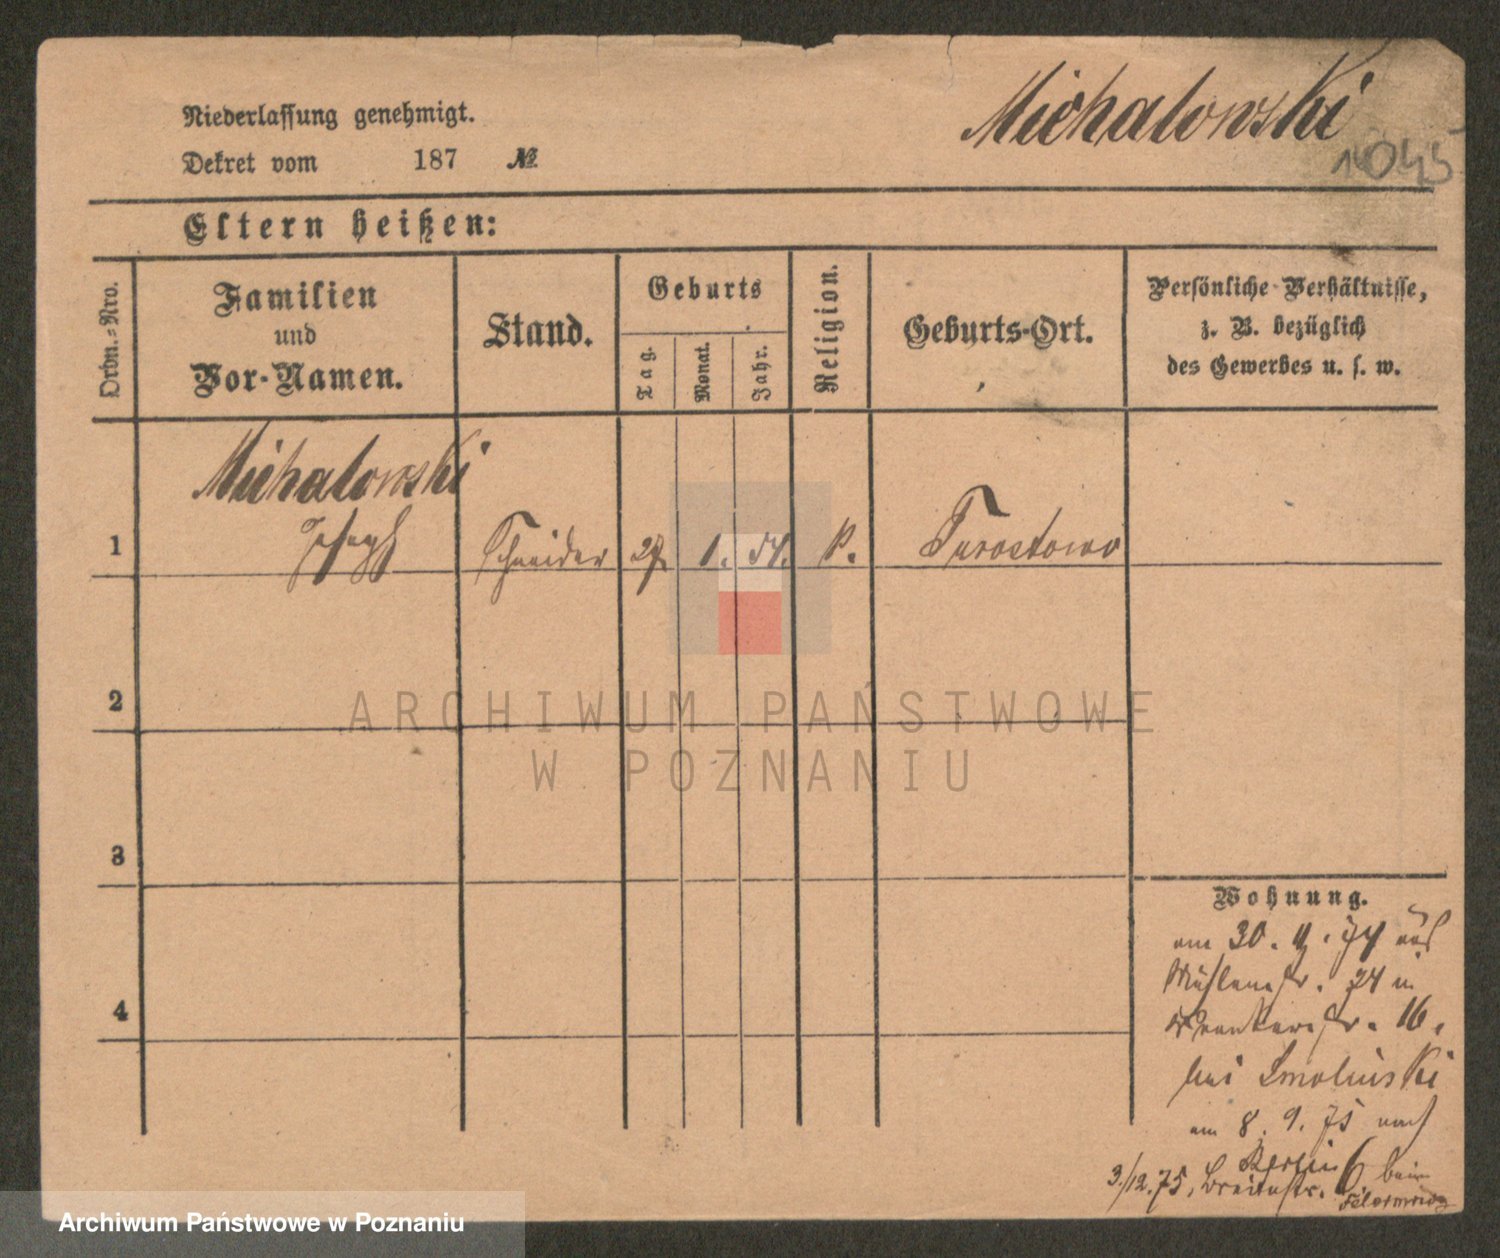 Michalowski
Niederlassung genehmigt.
14045
Dekret vom 187 №
Eltern heißen:
Ordn.=Nro.
Familien
und
Vor-Namen.
Stand.
Geburts
Tag.
Monat.
Jahr.
Religion.
Geburts-Ort.
Persönliche Verhältnisse,
z. B. bezüglich
des Gewerbes u. s. w.
Michalowski
1 Joseph Schneider 27. 1. 54. k. Turostowo
2
3
4
Wohnung.
am 30. 74 aus
Mühlenstr. 24 in
16.
bei Smolinski
am 8. 9. 75 nach
Berlin
3./12.75. Breitestr. 6 beim
ARCHIWUM PAŃSTWOWE
W POZNANIU
Archiwum Państwowe w Poznaniu